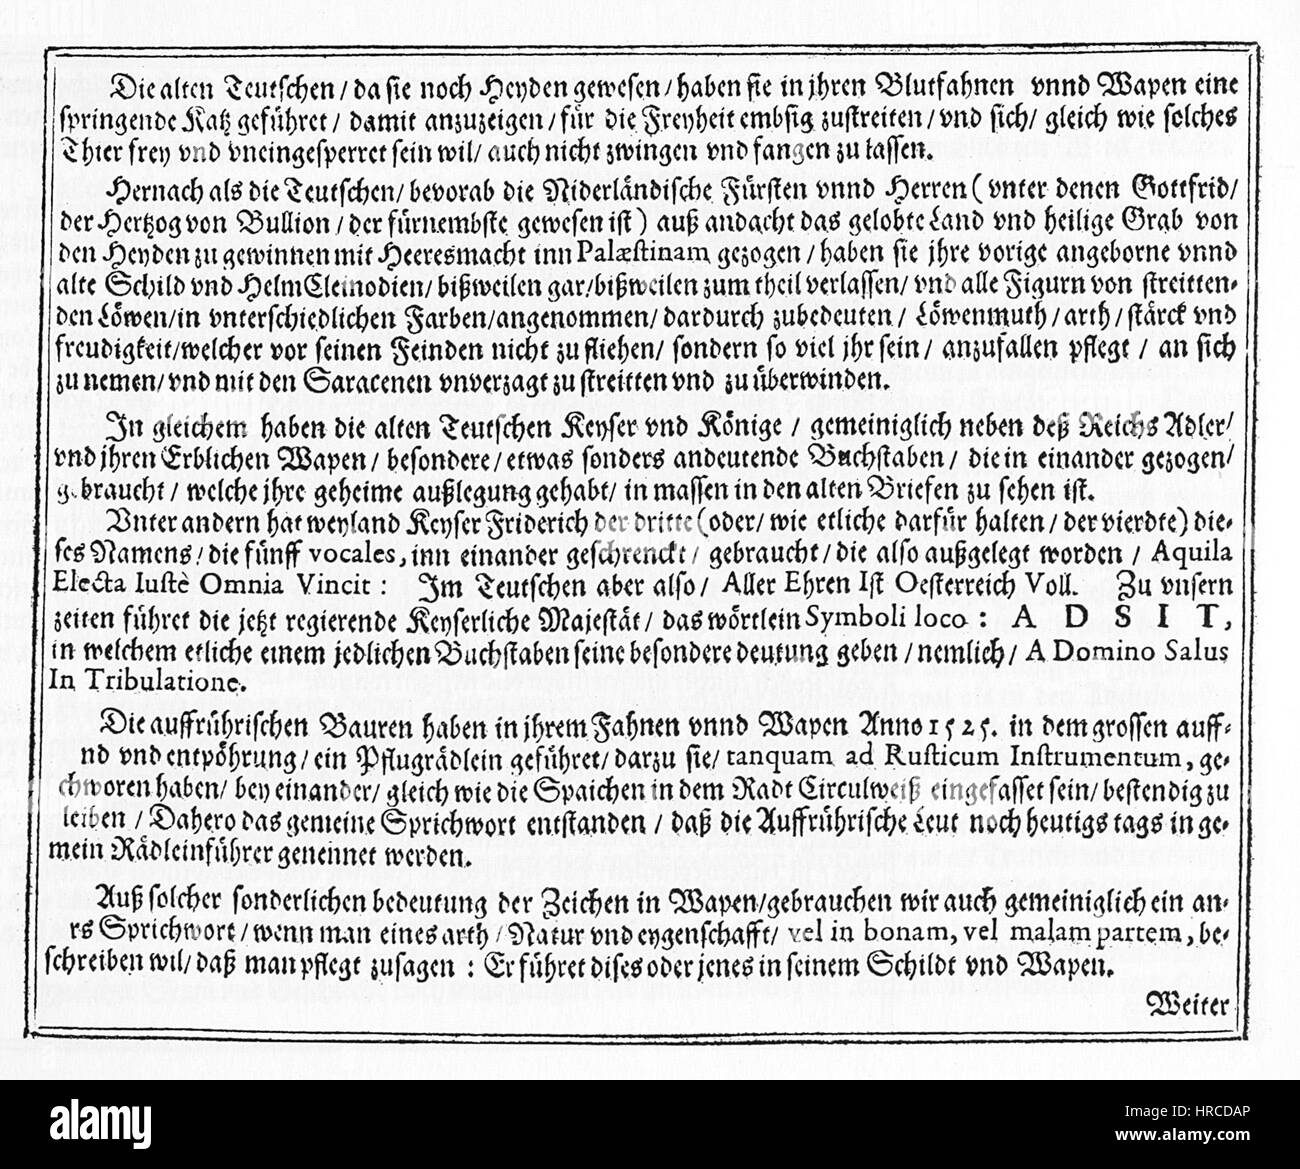 Die alten Teutschen / da sie noch Heyden gewesen / haben sie in jhren Blutfahnen vnnd Wapen eine
springende Katz geführet / damit anzuzeigen / für die Freyheit embsig zustreiten / vnd sich / gleich wie solches
Thier frey vnd vneingesperret sein wil / auch nicht zwingen vnd fangen zu lassen.
Hernach als die Teutschen / bevorab die Niderländische Fürsten vnnd Herren ( vnter denen Gottfrid /
der Hertzog von Bullion / der fürnembste gewesen ist ) auß andacht das gelobte Land vnd heilige Grab von
den Heyden zu gewinnen mit Heeresmacht inn Palæstinam gezogen / haben sie jhre vorige angeborne vnnd
alte Schild vnd HelmCleinodien / bißweilen gar / bißweilen zum theil verlassen / vnd alle Figurn von streitten-
den Löwen / in vnterschiedlichen Farben / angenommen / dardurch zubedeuten / Löwenmuth / arth / stärck vnd
freudigkeit / welcher vor seinen Feinden nicht zu fliehen / sondern so viel jhr sein / anzufallen pflegt / an sich
zu nemen / vnd mit den Saracenen vnverzagt zu streitten vnd zu überwinden.
In gleichem haben die alten Teutschen Keyser vnd Könige / gemeiniglich neben deß Reichs Adler /
vnd jhren Erblichen Wapen / besondere / etwas sonders andeutende Buchstaben / die in einander gezogen /
gebraucht / welche jhre geheime außlegung gehabt / in massen in den alten Briefen zu sehen ist.
Vnter andern hat weyland Keyser Friderich der dritte ( oder / wie etliche darfür halten / der vierdte ) die-
ses Namens / die fünff vocales, inn einander geschrenckt / gebraucht / die also außgelegt worden / Aquila
Electa Iustè Omnia Vincit : Im Teutschen aber also / Aller Ehren Ist Oesterreich Voll. Zu vnsern
zeiten führet die jetzt regierende Keyserliche Majestät / das wörtlein Symboli loco : A D S I T,
in welchem etliche einem jedlichen Buchstaben seine besondere deutung geben / nemlich / A Domino Salus
In Tribulatione.
Die auffrührischen Bauren haben in jhrem Fahnen vnnd Wapen Anno 1525. in dem grossen auff-
nd vnd entpöhrung / ein Pflugrädlein geführet / darzu sie / tanquam ad Rusticum Instrumentum, ge-
chworen haben / bey einander / gleich wie die Spaichen in dem Radt Circulweiß eingefasset sein / bestendig zu
leiben / Dahero das gemeine Sprichwort entstanden / daß die Auffrührische Leut noch heutigs tags in ge-
mein Rädleinführer genennet werden.
Auß solcher sonderlichen bedeutung der Zeichen in Wapen / gebrauchen wir auch gemeiniglich ein an-
rs Sprichwort / wenn man eines arth / Natur vnd eygenschafft / vel in bonam, vel malam partem, be-
schreiben wil / daß man pflegt zusagen : Er führet dises oder jenes in seinem Schildt vnd Wapen.
Weiter
alamy
Image ID: HRCDAP
www.alamy.com